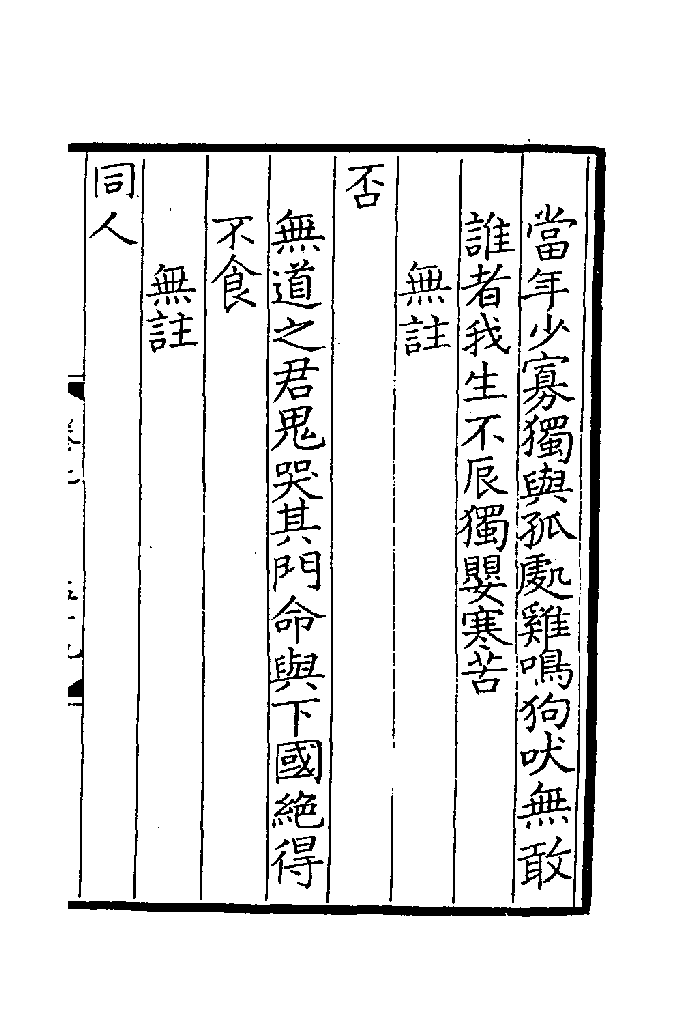 當年少寡獨與孤處雞鳴狗吠無敢
誰者我生不辰獨嬰寒苦
無註
否
無道之君鬼哭其門命與下國絶得
不食
無註
同人